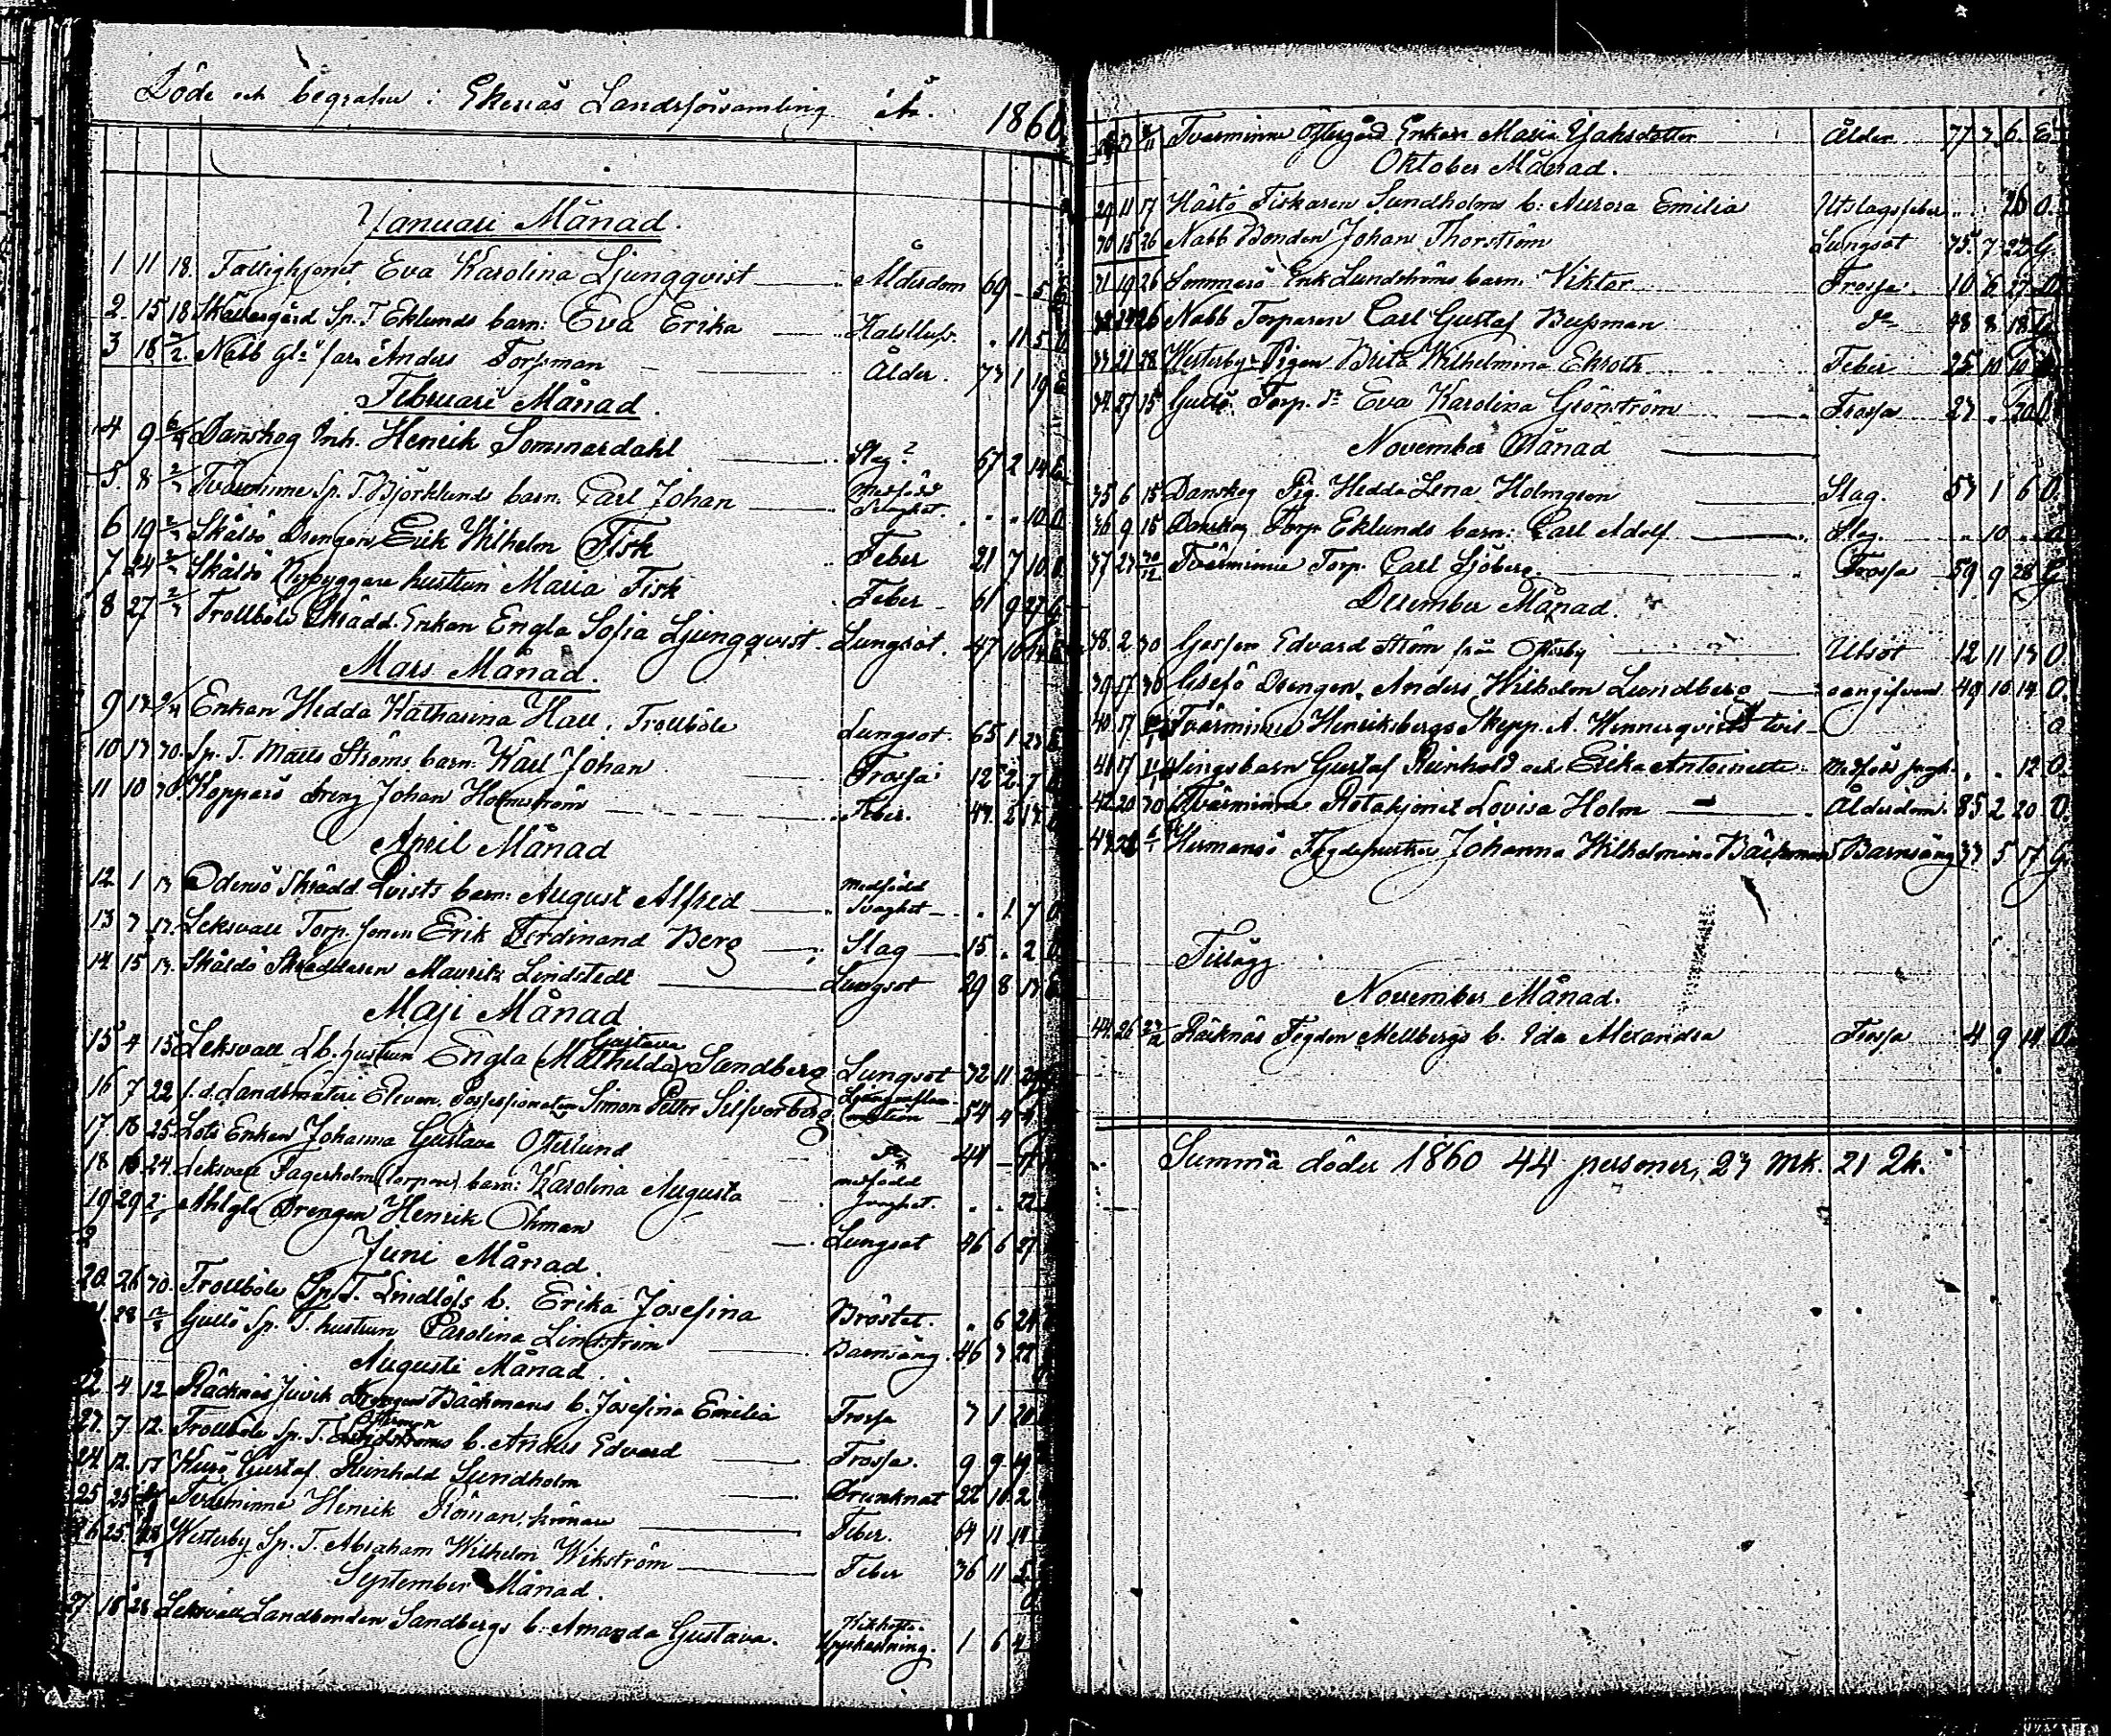 Döde och begrafne i Ekenäs Landsförsamling År 1860
Januari Månad.
1 11 18. Fattighjonet Eva Karolina Ljungqvist Ålderdom 69 - 5 E
2. 15 18 Skåldargård Sp. T. Eklunds barn: Eva Erika " 11 5 O
3 18 3/2. Nabb Gl: far Anders Torpman Ålder. 73 1 19 E
Februari Månad.
4 9 Danskog Inh. Henrik Sommardahl Slag? 67 2 14 E
5. 8 Tvärminne Sp. T. Björklunds barn. Carl Johan Medfödd Svaghet. " " 10 O
6 19 Skåldö Drengen Erik Wilhelm Fisk Feber 21 7 10 O
7 24 Skåldö Nybyggare hustrun Maria Fisk Feber 61 9 27 G
8 27 Trollböle Skrädd. Enkan Engla Sofia Ljungqvist. Lungsot. 47 10 E
Mars Månad.
9 Enkan Hedda Katharina Hall, Trollböle Lungsot. 65 1 23 E
10 13 30. Sp. T. Matts Ströms barn: Karl Johan Frossa 12 2 7 O
11 10 30. Kopparö dreng Johan Holmström Feber. 2 O
April Månad
12. 1 13 Odensö Skrädd. Qvists barn: August Alfred Medfödd Svaghet " 1 7 O
13 7 17. Leksvall Torp. sonen Erik Ferdinand Berg Slag 15 " 2 O
14 15 13. Skåldö Skräddaren Mauritz Lindstedt Lungsot 29 8 13 E
Maji Månad
Gustava
15 4 15 Leksvall Lb. hustrun Engla (Mathilda) Sandberg Lungsot 32 11
16 7 22 f.d. Landtmäteri Eleven, Possessionaten Simon Petter Silfverberg 54 4
17. 18 25 Enkan Johanna Gustava Österlund 44
18 16 24. Leksvall Fagerholm (torpare) barn: Karolina Augusta medfödd svaghet. " " 22
19 29 2/6 Ahlglo Drengen Henrik Öhman Lungsot 46 6 27
Juni Månad.
20. 26 30. Trollböle Sp. T. Lindlöfs b. Erika Josefina Bröstet. " 6 24
21. 28 Gullö Sp. T. hustrun Carolina Lindström Barnsäng. 46 3 22
Augusti Månad.
22 4 12 Räcknäs Juvik Drengen Bäckmans b. Josefina Emilia Frossa 7 1 20
23. 7. 12. Trollböle Sp. T. Lindströms b. Anders Edvard Frossa. 9 9 19
24 12. 17 Gustaf Reinhold Sundholm Drunknat 22 10 2
25 25 Tvärminne Henrik Roman, krönare Feber. 64 11 14
26 25 Westerby Sp. T. Abraham Wilhelm Wikström Feber 36 11 5
September Månad.
27. 18 23 Leksvall Landbonden Sandbergs b. Amanda Gustava. Kikhosta. Uppkastning. 1 6 4
28 23 Tvärminne Östergård Enkan Maria Jakobsdotter Ålder 77 3 6. E
Oktober Månad.
29 11 17 Hästö Fiskaren Sundholms b: Aurora Emilia Utslagsfeber " 26 O.
30 15 26 Nabb Bonden Johan Thorström Lungsot 75 7 23 G
31 19 26 Sommarö Enk Lundströms barn: Viktor Frossa. 10 6 27 O.
32 24 26 Nabb Torparen Carl Gustaf Bussman d:o 48 8 18 G
33 21 28 Westerby Pigan Brita Wilhelmina Ekroth Feber 25 10 10
34 27 15 Gullö Torp. d:r Eva Karolina Grönström Frossa 23 " 20 O
November Månad
35 6 15 Danskog Pig. Hedda Lena Holmgren Slag. 53 1 6 O.
36 9 15 Danskog Torp Eklunds barn: Carl Adolf Slag. " 10 " O
37 23 30/12 Tvärminne Torp. Carl Sjöberg. Frossa 59 9 28 G
December Månad.
38. 2. 30 Gossen Edvard Ström från Österby Utsot 12 11 13 O.
39 17 30 Drengen Anders Wilhelm Lundberg oangifven. 49 10 14 O.
40. 17 Tvärminne Henriksbergs Skepp. A. Winnerqvists tvil- O
41 17 lingsbarn Gustaf Reinhold och Erika Antoinette Medfödd svagh. " " 12 O.
42 20 30 Tvärminne Rotehjonet Lovisa Holm Ålderdom. 85 2 20 O.
43 Hermansö Fogdehustru Johanna Wilhelmina Bäckman Barnsäng 33 5 17 G.
Tillägg
November Månad.
44. 26 Räcknäs Fogden Mellbergs b. Ida Alexandra Frossa 4 9 14 O.
Summa döder 1860 44 personer, 23 Mk. 21 Qk.